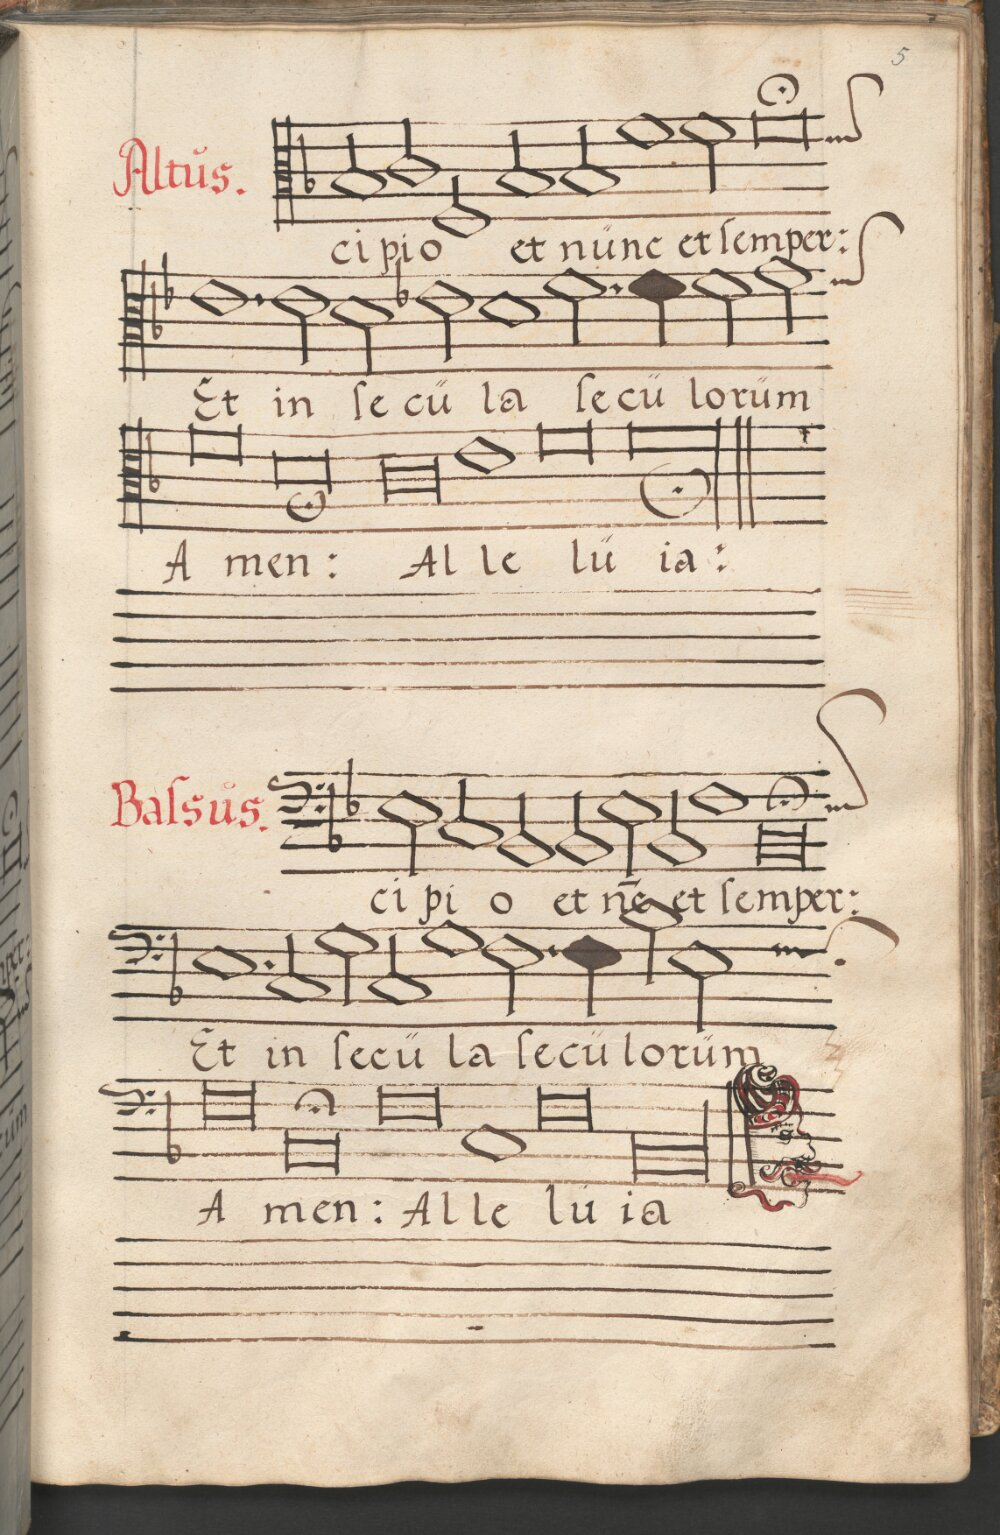 5
Altus.
cipio et nunc et semper:
Et in secu la secu lorum
A men: Al le lu ia:
Bassus.
ci pi o et nc̄ et semper:
Et in secu la secu lorum
A men: Al le lu ia